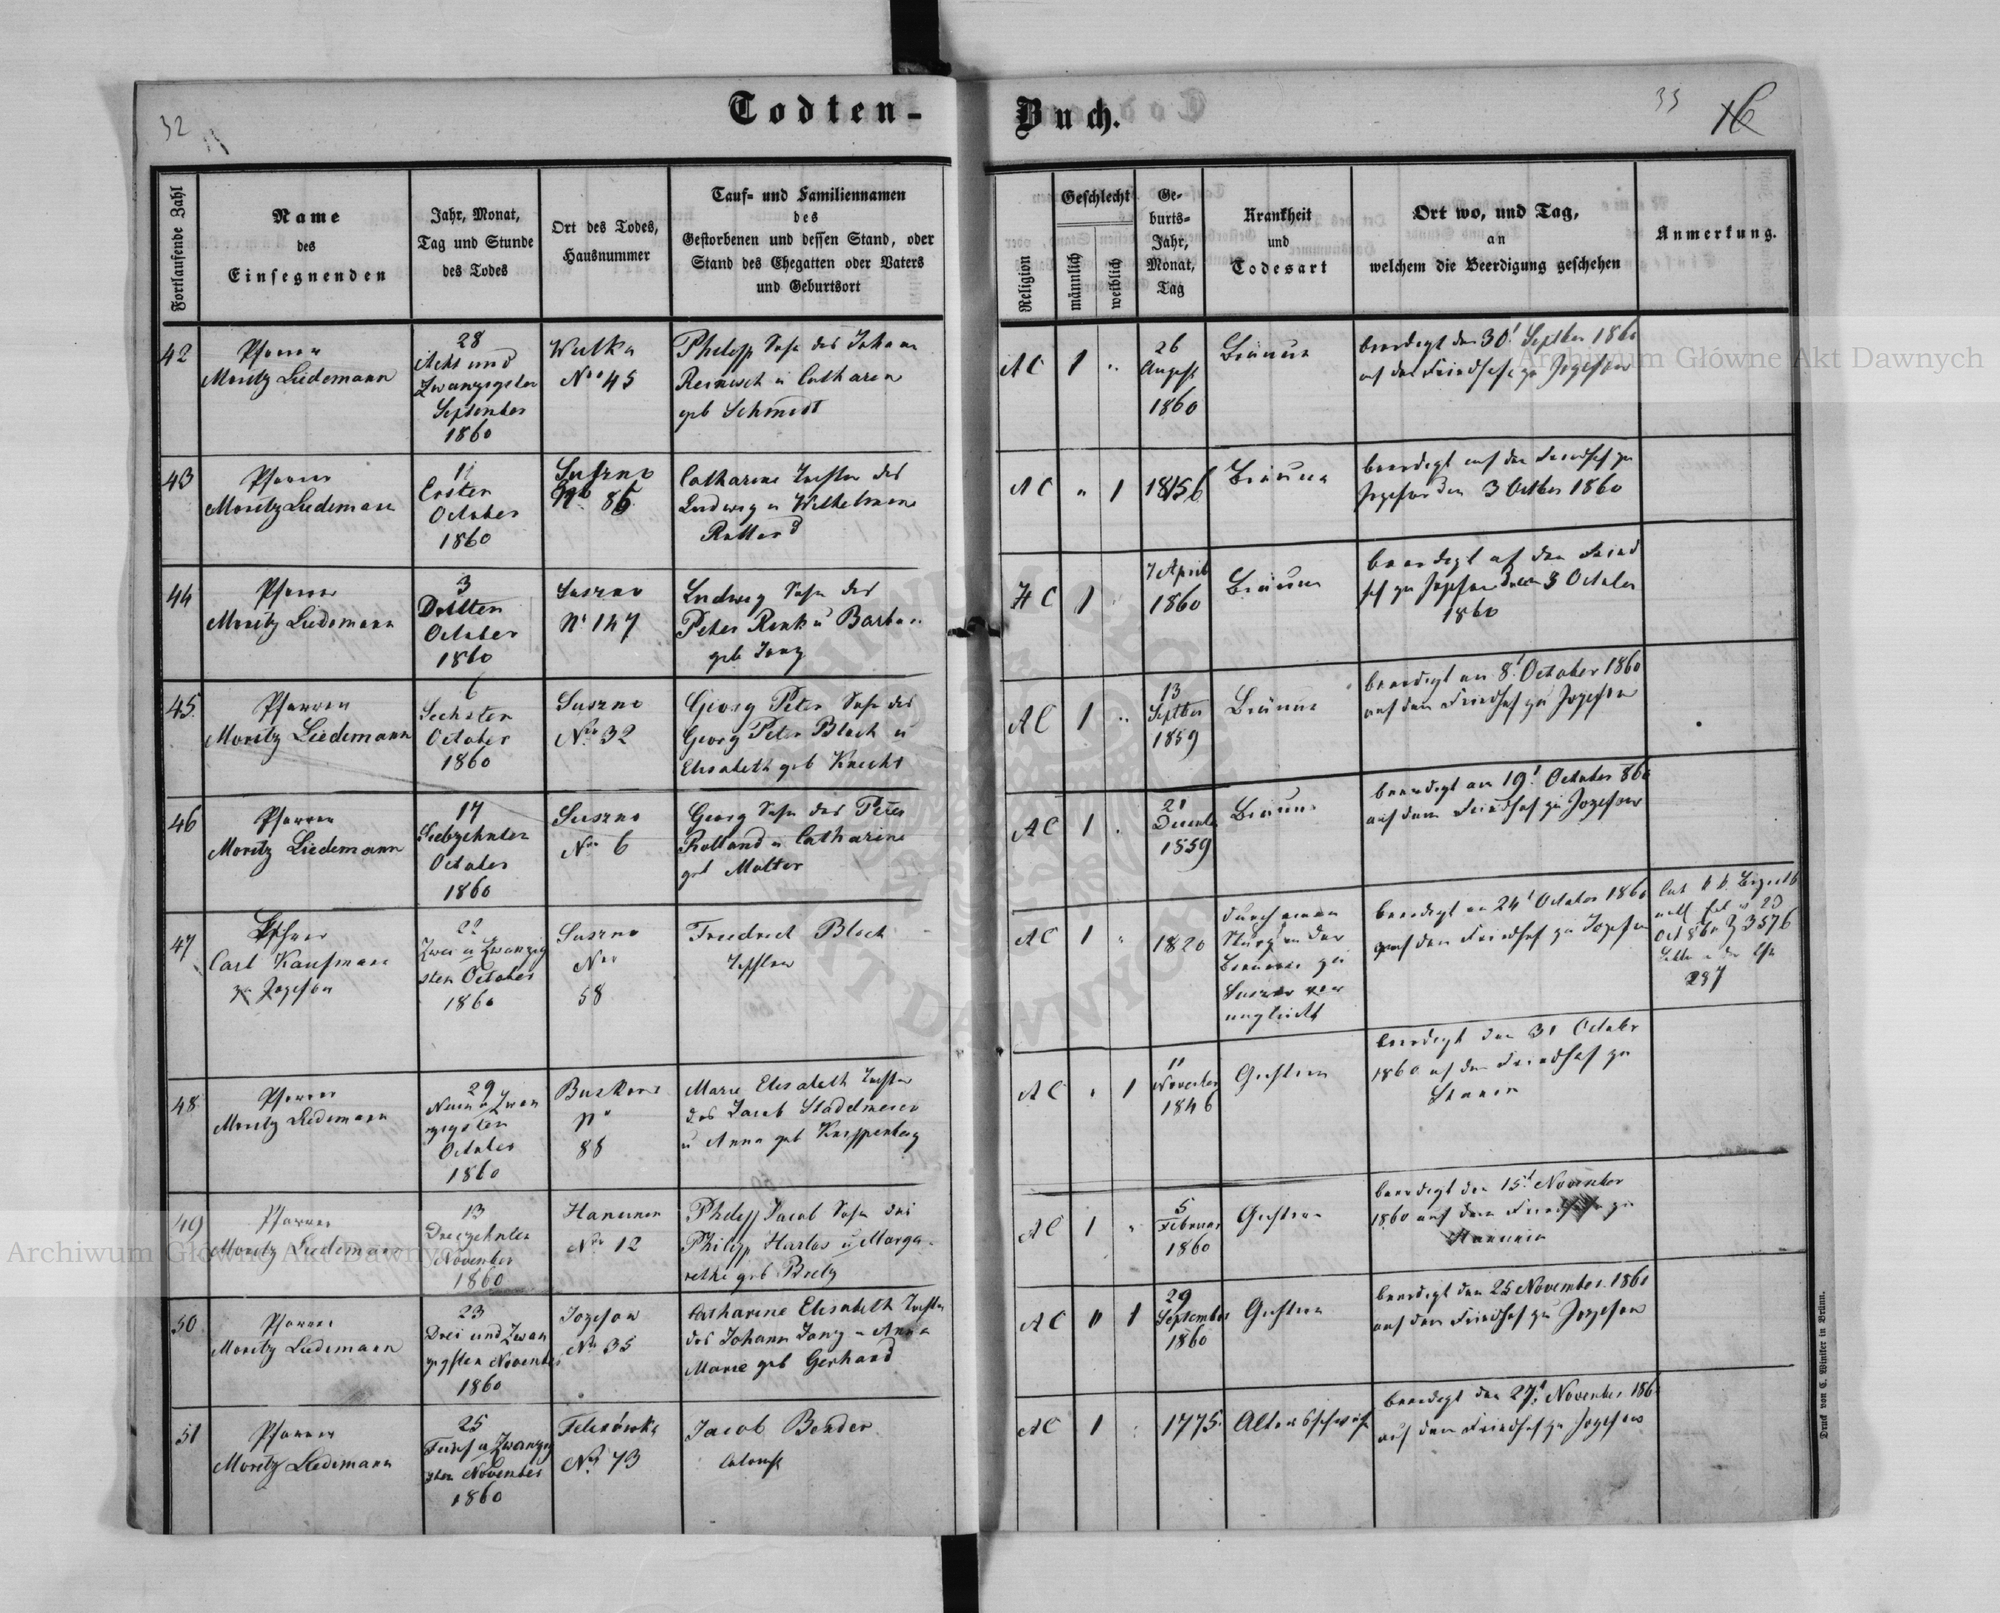 32
Todten-
Buch.
33
16
Fortlaufende Zahl
Name
des
Einsegnenden
Jahr, Monat,
Tag und Stunde
des Todes
Ort des Todes,
Hausnummer
Tauf- und Familiennamen
des
Gestorbenen und dessen Stand, oder
Stand des Ehegatten oder Vaters
und Geburtsort
Religion
Geschlecht
männlich
weiblich
Ge-
burts-
Jahr,
Monat,
Tag
Krankheit
und
Todesart
Ort wo, und Tag,
an
welchem die Beerdigung geschehen
Anmerkung.
42
Pfarrer
Moritz Liedemann
28
Acht und
Zwanzigster
September
1860
Wulka
Nro 45
Philipp Sohn des Johann
Reinisch u Catharina
geb Schmidt
AC
1
"
26
August
1860
Bräune
beerdigt den 30t Septber 1860
auf den Friedhofe zu Jozefow
43
Pfarrer
Moritz Liedemann
1
Ersten
October
1860
Suszno
No 86
Catharine Tochter des
Ludwig u Wilhelmine
AC
"
1
Bräune
beerdigt auf den Friedhof zu
Jozefow den 3 Octber 1860
44
Pfarrer
Moritz Liedemann
3
Dritten
October
1860
Suszno
No 147
Ludwig Sohn des
Peter Renk u Barbara
geb Jung
AC
1
7 April
1860
Bräune
beerdigt auf den Fried
hof zu Jozefow den 3 October
1860
45
Pfarrer
Moritz Liedemann
6
Sechster
October
1860
Suszno
Nro 32
Georg Peter Sohn des
Georg Peter Bloch u
Elisabeth geb Knecht
AC
1
"
13
Septber
1859
Bräune
beerdigt am 8t October 1860
auf dem Friedhof zu Jozefow
46
Pfarrer
Moritz Liedemann
17
Siebzehnten
October
1860
Suszno
Nro 6
Georg Sohn des Peter
Rolland u Catharine
geb Walter
AC
1
21
1859
Bräune
beerdigt am 19t October 860
auf dem Friedhof zu Jozefow
47
Pfarrer
Carl Kaufmann
zu Jozefow
22
Zwei u Zwanzig
sten October
1860
Suszno
Nro
58
Friedrich Bloch
AC
1
"
1820
durch einen
Sturz in der
Brauerei zu
Suszno ver
unglückt
beerdigt am 24t October 1860
auf den Friedhof zu Jozefow
Oct 860 Z 3576
237
48
Pfarrer
Moritz Liedemann
29
Neun u Zwan
zigsten
October
1860
No
88
Marie Elisabeth Tochter
des Jacob Stadelmeier
u Anna geb Knippenberg
AC
"
1
11
November
1846
Gastrin
beerdigt den 31 October
1860 auf dem Friedhof zu
49
Pfarrer
Moritz Liedemann
13
Dreizehnten
November
1860
Hanunin
Nro 12
Philipp Jacob Sohn des
Philipp Harlos u Marga-
rethe geb Bretz
AC
1
"
5
Februar
1860
Gastrin
beerdigt den 15t November
1860 auf dem Friedhofe zu
Hanunin
50
Pfarrer
Moritz Liedemann
23
Drei und Zwan
zigsten November
1860
Jozefow
No 35
Catharine Elisabeth Tochter
des Johann Jung u Anna
Marie geb Gerhard
AC
"
1
29
September
1860
Gastrin
beerdigt den 25 November 1860
auf dem Friedhof zu Jozefow
51
Pfarrer
Moritz Liedemann
25
Fünf u Zwanzig
sten November
1860
Felixówka
No 73
Jacob Bender
Colonist
AC
1
1775.
Altersschwäche
beerdigt den 27t November 1860
auf dem Friedhof zu Jozefow
Druck von C. Winiker in Brünn.
Archiwum Główne Akt Dawnych
Archiwum Główne Akt Dawnych
ARCHIWUM GŁÓWNE
AKT DAWNYCH